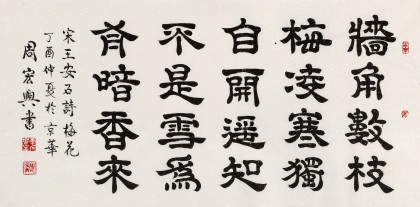 牆角數枝
梅凌寒獨
自開遥知
不是雪爲
有暗香來
宋王安石詩梅花
丁酉仲夏於京華
周宏興書